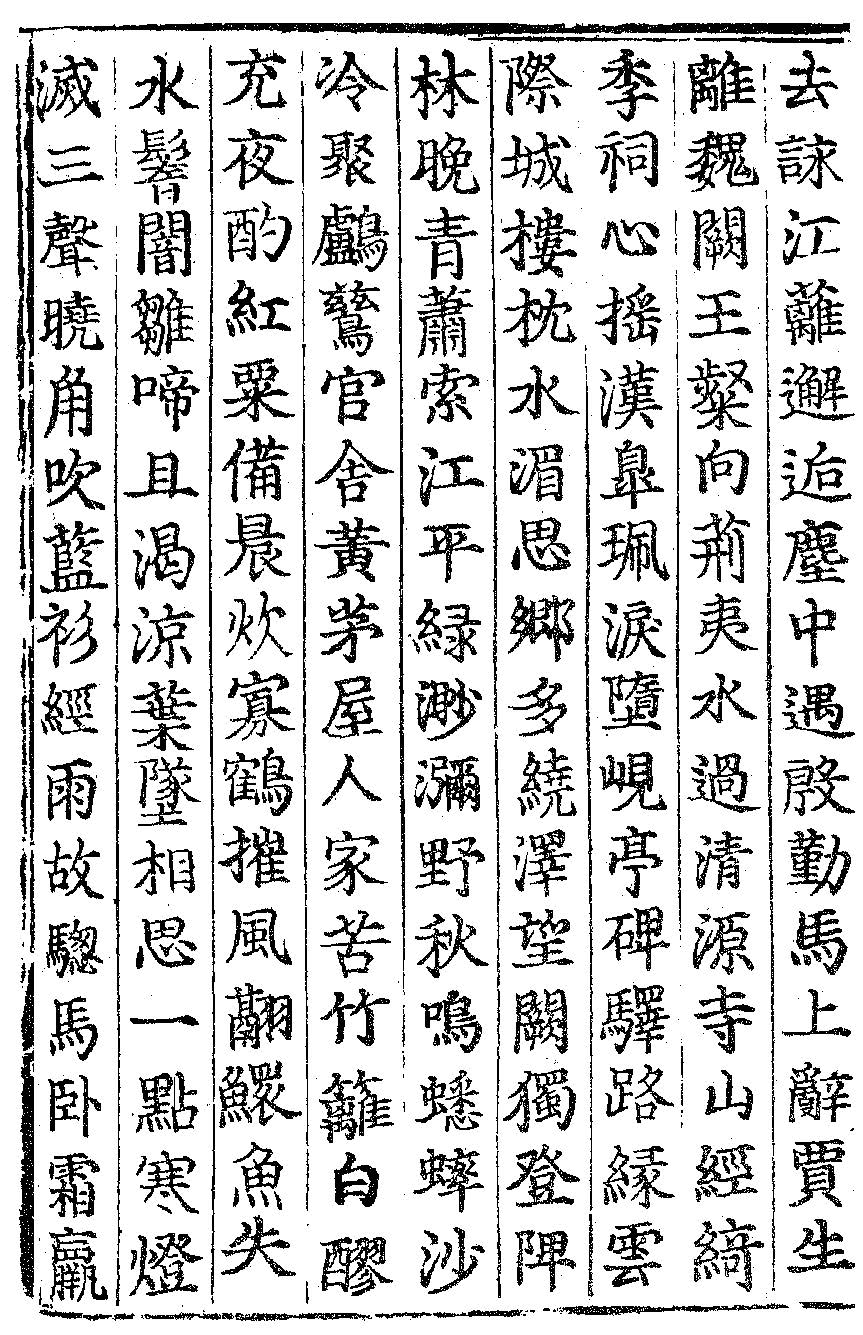 去詠江蘺邂逅塵中遇殷勤馬上辭賈生
離魏闕王粲向荊夷水過清源寺山經綺
季祠心摇漢臯珮淚墮峴亭碑驛路緣雲
際城樓枕水湄思鄉多繞澤望闕獨登陴
林晚青蕭索江平緑渺瀰野秋鳴蟋蟀沙
冷聚鸕鶿官舍黃茅屋人家苦竹籬白醪
充夜酌紅粟備晨炊寡鶴摧風翮鰥魚失
水鬐闇雛啼且渴涼葉墜相思一點寒燈
滅三聲曉角吹藍衫經雨故驄馬卧霜羸